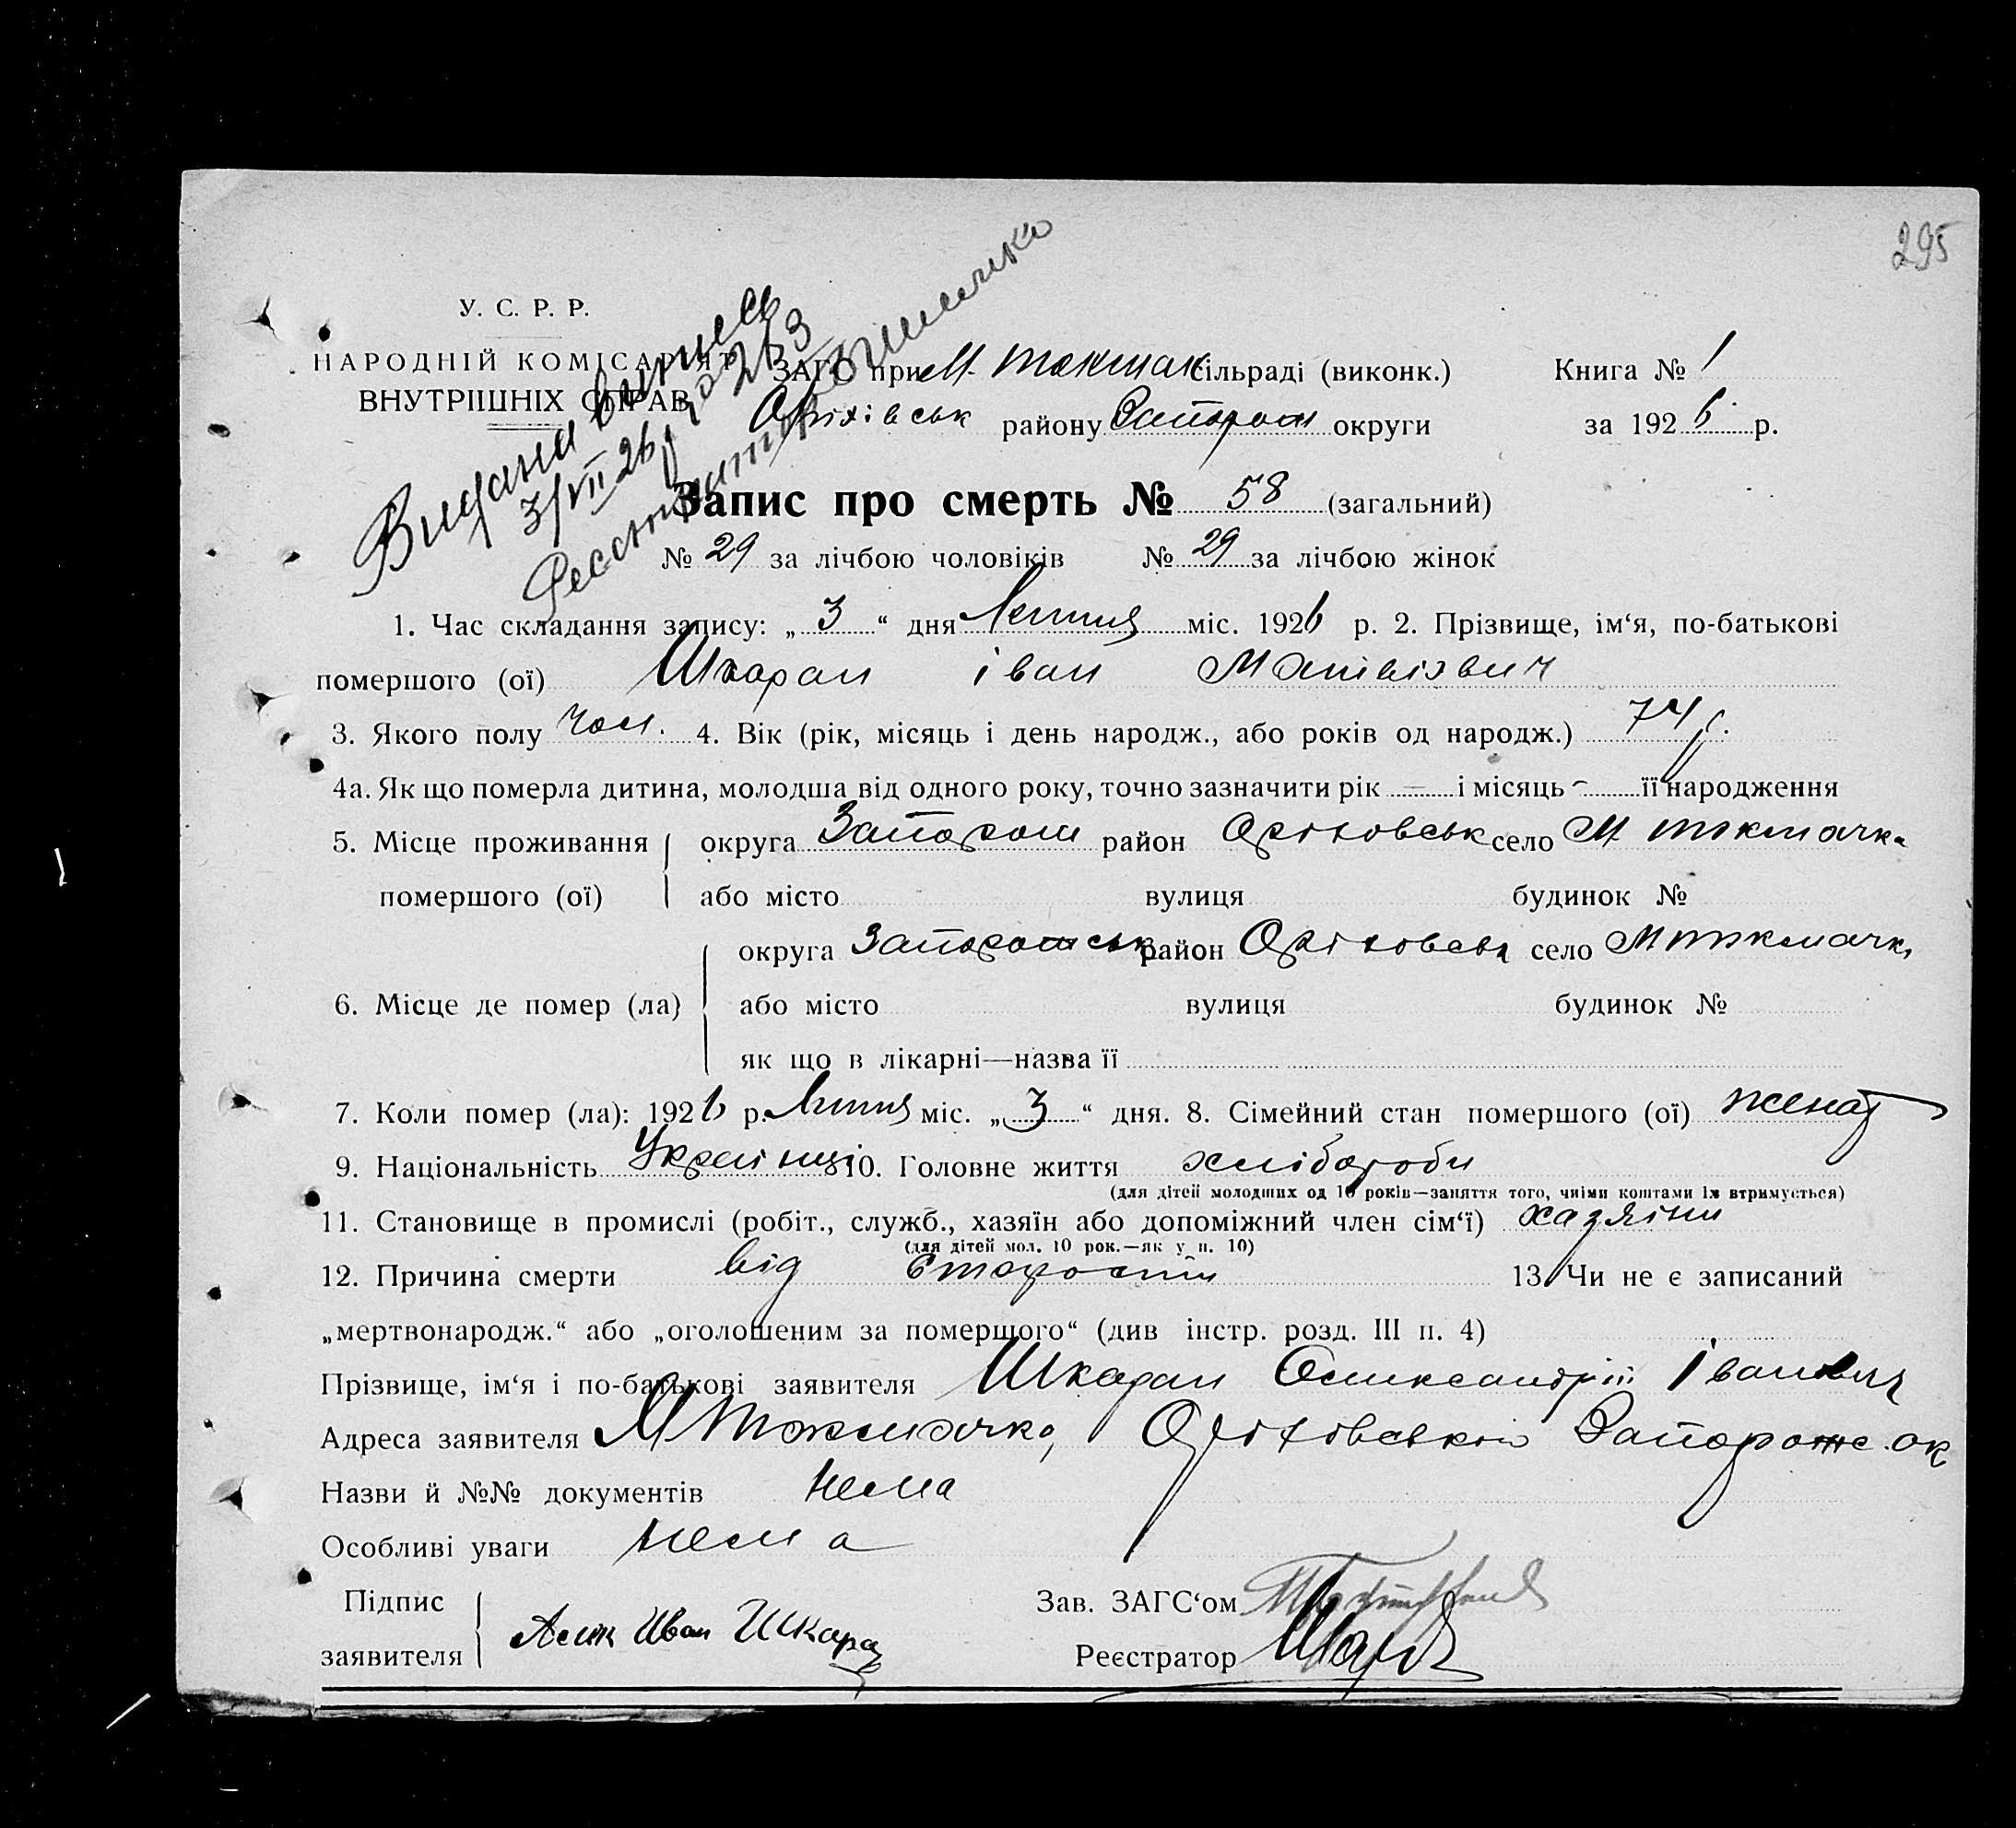 295
У. С. Р. Р.
НАРОДНІЙ КОМІСАРІЯТ
ВНУТРІШНІХ СПРАВ
Видана випись
3/VII 26 р. № 283
ЗАГС при М. Токмак сільраді (виконк.)
Книга № 1
Оріхівськ району Запорож округи
за 1926 р.
Запис про смерть № 58 (загальний)
№ 29 за лічбою чоловіків № 29 за лічбою жінок
1. Час складання запису: „ 3 “ дня Липня міс. 1926 р. 2. Прізвище, ім‘я, по-батькові
помершого (ої) Шкарап іван Матвієвич
3. Якого полу чол. 4. Вік (рік, місяць і день народж., або років од народж.) 74 р.
4а. Як що померла дитина, молодша від одного року, точно зазначити рік — і місяць - її народження
5. Місце проживання округа Запорож район Оріховськ село М Токмачка
помершого (ої) або місто вулиця будинок №
округа Запорожськ район Оріховськ село М Токмачк
6. Місце де помер (ла) або місто вулиця будинок №
як що в лікарні—назва її
7. Коли помер (ла): 1926 р. Липня міс. „ 3 “ дня. 8. Сімейний стан помершого (ої) женат
9. Національність Українці 10. Головне життя хлібороби
(для дітей молодших од 10 років—заняття того, чиїми коштами їх втримується)
11. Становище в промислі (робіт., служб., хазяїн або допоміжний член сім‘ї) хазяіни
(для дітей мол. 10 рок.—як у п. 10)
12. Причина смерти від старости 13. Чи не є записаний
„мертвонародж.“ або „оголошеним за помершого“ (див інстр. розд. III п. 4)
Прізвище, ім‘я і по-батькові заявителя Шкарап Олександрій Іванович
Адреса заявителя М Токмачка, Оріхівською Запорож. ок
Назви й №№ документів нема
Особливі уваги нема
Підпис
заявителя
Иван Шкарап
Зав. ЗАГС‘ом
Реєстратор